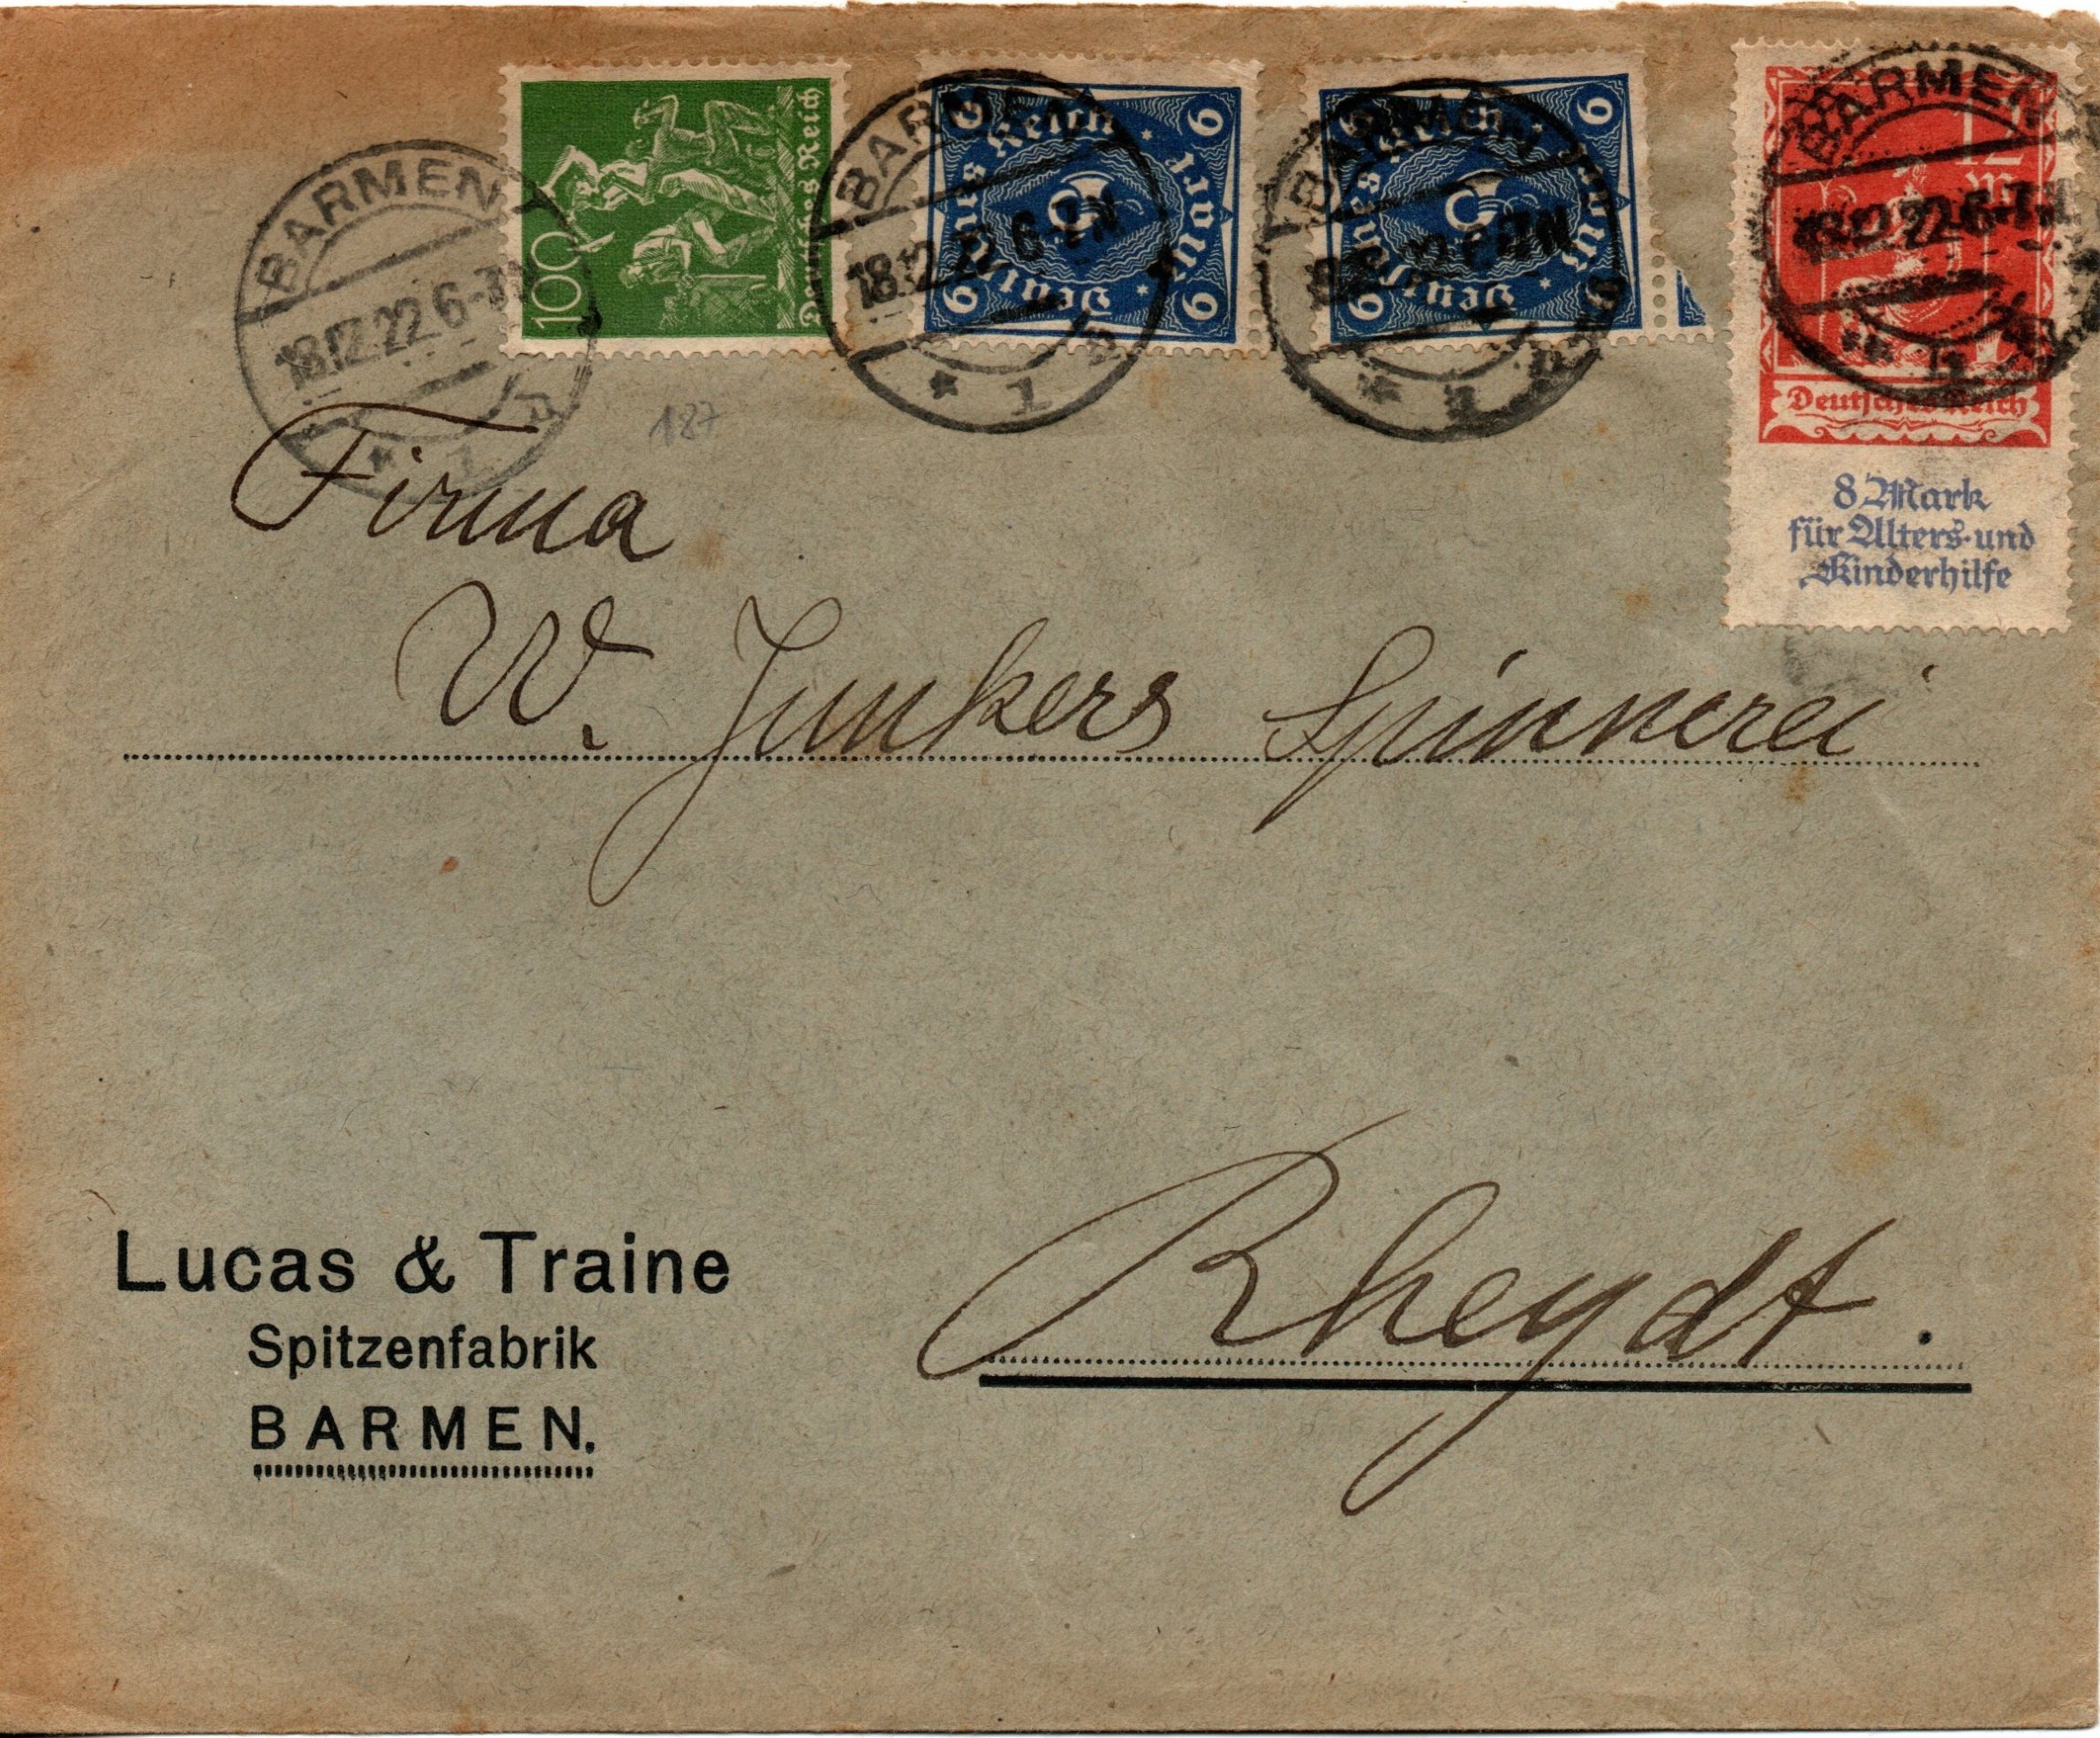 BARMEN
18.12.22.6-7N
* 1 p
100
Deutsches Reich
BARMEN
18.12.22 6-7N
* 1 p
6 6 6 6
Deutsches Reich * Mark *
BARMEN
* 1 p
6 6 6 6
Deutsches Reich * Mark *
BARMEN
18.12.22.6-7N
12
M
Deutsches Reich
8 Mark
für Alters- und
Kinderhilfe
187
Firma
W. Junkers Spinnerei
Rheydt.
Lucas & Traine
Spitzenfabrik
BARMEN.